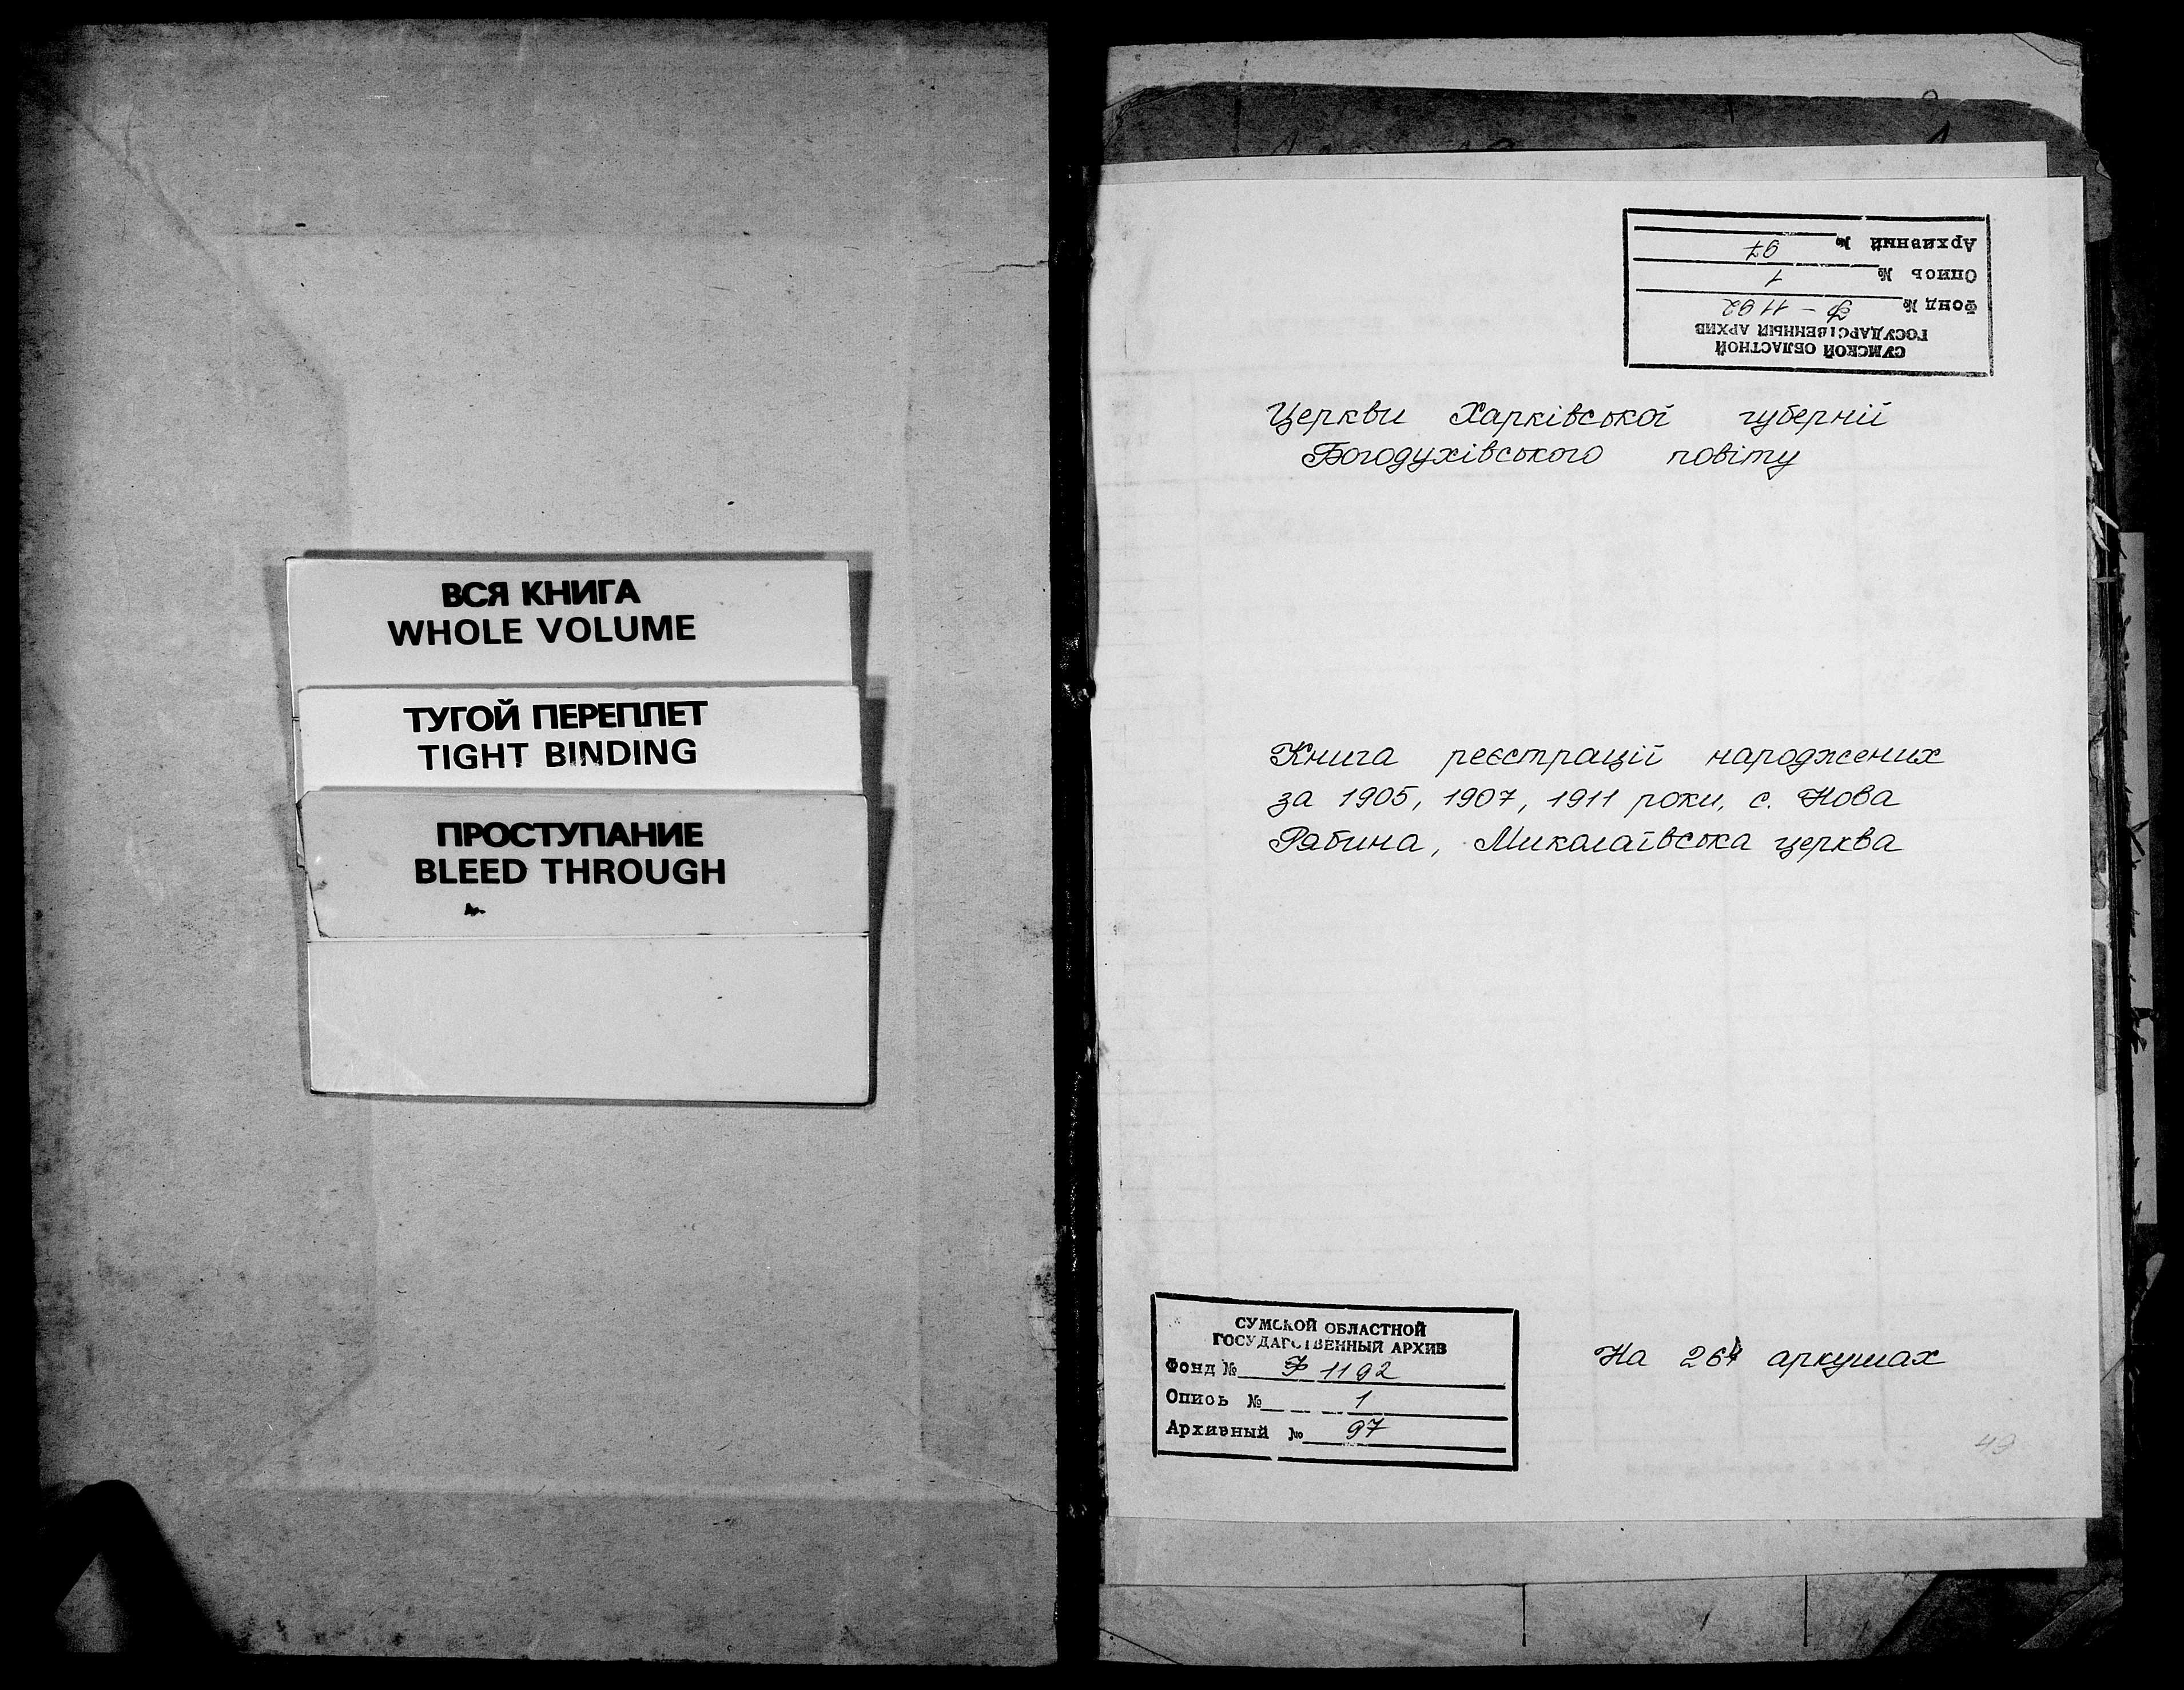 ВСЯ КНИГА
WHOLE VOLUME
ТУГОЙ ПЕРЕПЛЕТ
TIGHT BINDING
ПРОСТУПАНИЕ
BLEED THROUGH
СУМСКОЙ ОБЛАСТНОЙ
ГОСУДАРСТВЕННЫЙ АРХИВ
Фонд № Ф-1192
Опись № 1
Архивный № 97
Церкви Харківської губернії
Богодухівського повіту
Книга реєстрації народжених
за 1905, 1907, 1911 роки, с. Нова
Рябина, Миколаївська церква
СУМСКОЙ ОБЛАСТНОЙ
ГОСУДАРСТВЕННЫЙ АРХИВ
Фонд № Ф 1192
Опись № 1
Архивный № 97
На аркушах
49